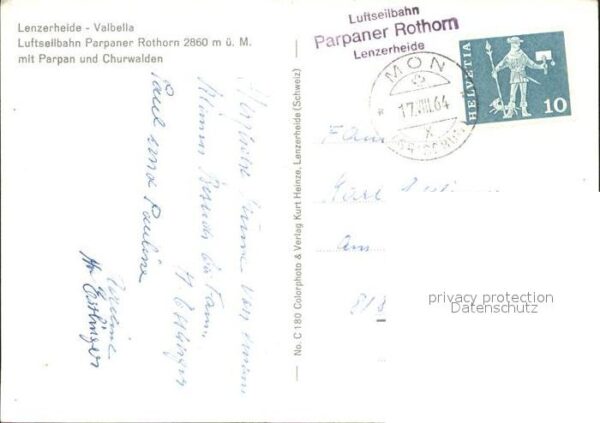 Lenzerheide - Valbella
Luftseilbahn Parpaner Rothorn 2860 m ü. M.
mit Parpan und Churwalden
Luftseilbahn
Parpaner Rothorn
Lenzerheide
MON
17.VIII.64
X
HELVETIA
10
Herzliche von einem
Besuch bei Fam.
Paul und Pauline
No. C 180 Colorphoto & Verlag Kurt Heinze, Lenzerheide (Schweiz)
Fam
Am
privacy protection
Datenschutz